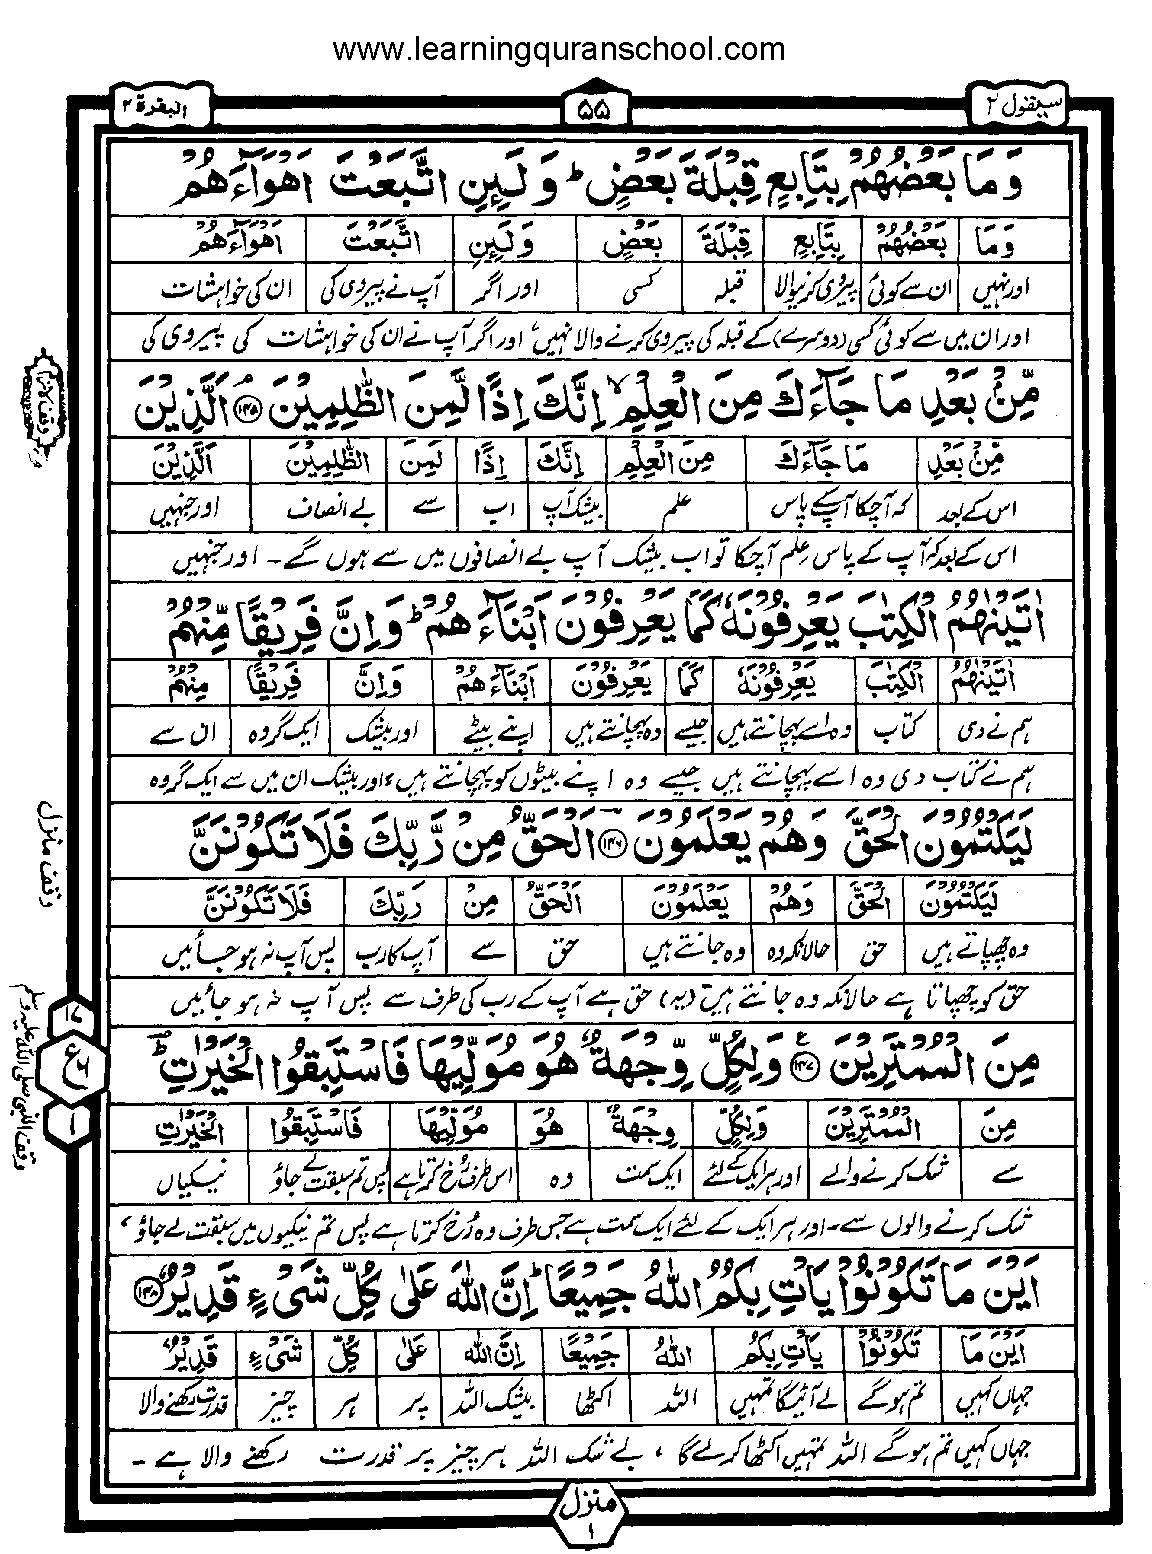 www.learningquranschool.com
سيقول ٢
۵۵
البقرة ٢
وَمَا بَعْضُهُمْ بِتَابِعٍ قِبْلَةَ بَعْضٍ ؕ وَلَىِٕنِ اتَّبَعْتَ اَهْوَآءَهُمْ
وَمَا بَعْضُهُمْ بِتَابِعٍ قِبْلَةَ بَعْضٍ وَلَىِٕنِ اتَّبَعْتَ اَهْوَآءَهُمْ
اور نہیں ان سے کوئی پیروی کرنیوالا قبلہ کسی اور اگر آپ نے پیروی کی ان کی خواہشات
اور ان میں سے کوئی کسی (دوسرے) کے قبلہ کی پیروی کرنے والا نہیں، اور اگر آپ نے ان کی خواہشات کی پیروی کی
مِّنْۢ بَعْدِ مَا جَآءَكَ مِنَ الْعِلْمِ ۙ اِنَّكَ اِذًا لَّمِنَ الظّٰلِمِيْنَ ۘ ﴿۱۴۵﴾ اَلَّذِيْنَ
مِنْۢ بَعْدِ مَا جَآءَكَ مِنَ الْعِلْمِ اِنَّكَ اِذًا لَمِنَ الظّٰلِمِيْنَ اَلَّذِيْنَ
اس کے بعد کہ آچکا آپ کے پاس علم بیشک آپ اب سے بے انصاف اور جنہیں
اس کے بعد کہ آپ کے پاس علم آچکا تو اب بیشک آپ بے انصافوں میں سے ہوں گے۔ اور جنہیں
اٰتَيْنٰهُمُ الْكِتٰبَ يَعْرِفُوْنَهٗ كَمَا يَعْرِفُوْنَ اَبْنَآءَهُمْ ؕ وَاِنَّ فَرِيْقًا مِّنْهُمْ
اٰتَيْنٰهُمُ الْكِتٰبَ يَعْرِفُوْنَهٗ كَمَا يَعْرِفُوْنَ اَبْنَآءَهُمْ وَاِنَّ فَرِيْقًا مِنْهُمْ
ہم نے دی کتاب وہ اسے پہچانتے ہیں جیسے وہ پہچانتے ہیں اپنے بیٹے اور بیشک ایک گروہ ان سے
ہم نے کتاب دی وہ اسے پہچانتے ہیں جیسے وہ اپنے بیٹوں کو پہچانتے ہیں، اور بیشک ان میں سے ایک گروہ
لَيَكْتُمُوْنَ الْحَقَّ وَهُمْ يَعْلَمُوْنَ ﴿۱۴۶﴾ اَلْحَقُّ مِنْ رَّبِّكَ فَلَا تَكُوْنَنَّ
لَيَكْتُمُوْنَ الْحَقَّ وَهُمْ يَعْلَمُوْنَ اَلْحَقُّ مِنْ رَبِّكَ فَلَا تَكُوْنَنَّ
وہ چھپاتے ہیں حق حالانکہ وہ وہ جانتے ہیں حق سے آپ کا رب پس آپ نہ ہو جائیں
حق کو چھپاتا ہے حالانکہ وہ جانتے ہیں (یہ) حق ہے آپ کے رب کی طرف سے پس آپ نہ ہو جائیں
مِنَ الْمُمْتَرِيْنَ ﴿۱۴۷﴾ وَلِكُلٍّ وِّجْهَةٌ هُوَ مُوَلِّيْهَا فَاسْتَبِقُوا الْخَيْرٰتِ ؕ
مِنَ الْمُمْتَرِيْنَ وَلِكُلٍّ وِجْهَةٌ هُوَ مُوَلِّيْهَا فَاسْتَبِقُوا الْخَيْرٰتِ
سے شک کرنے والے اور ہر ایک کے لئے ایک سمت وہ اس طرف رخ کرتا ہے پس تم سبقت لے جاؤ نیکیاں
شک کرنے والوں سے۔ اور ہر ایک کے لئے ایک سمت ہے جس طرف وہ رُخ کرتا ہے پس تم نیکیوں میں سبقت لے جاؤ،
اَيْنَ مَا تَكُوْنُوْا يَاْتِ بِكُمُ اللّٰهُ جَمِيْعًا ؕ اِنَّ اللّٰهَ عَلٰى كُلِّ شَىْءٍ قَدِيْرٌ ﴿۱۴۸﴾
اَيْنَ مَا تَكُوْنُوْا يَاْتِ بِكُمُ اللّٰهُ جَمِيْعًا اِنَّ اللّٰهَ عَلٰى كُلِّ شَىْءٍ قَدِيْرٌ
جہاں کہیں تم ہو گے لے آئیگا تمہیں اللہ اکٹھا بیشک اللہ پر ہر چیز قدرت رکھنے والا
جہاں کہیں تم ہو گے اللہ تمہیں اکٹھا کرلے گا، بے شک اللہ ہر چیز پر قدرت رکھنے والا ہے۔
وقف لازم
وقف منزل
وقف النبی صلی اللہ علیہ وسلم
۱۷
ع
۱
منزل
۱